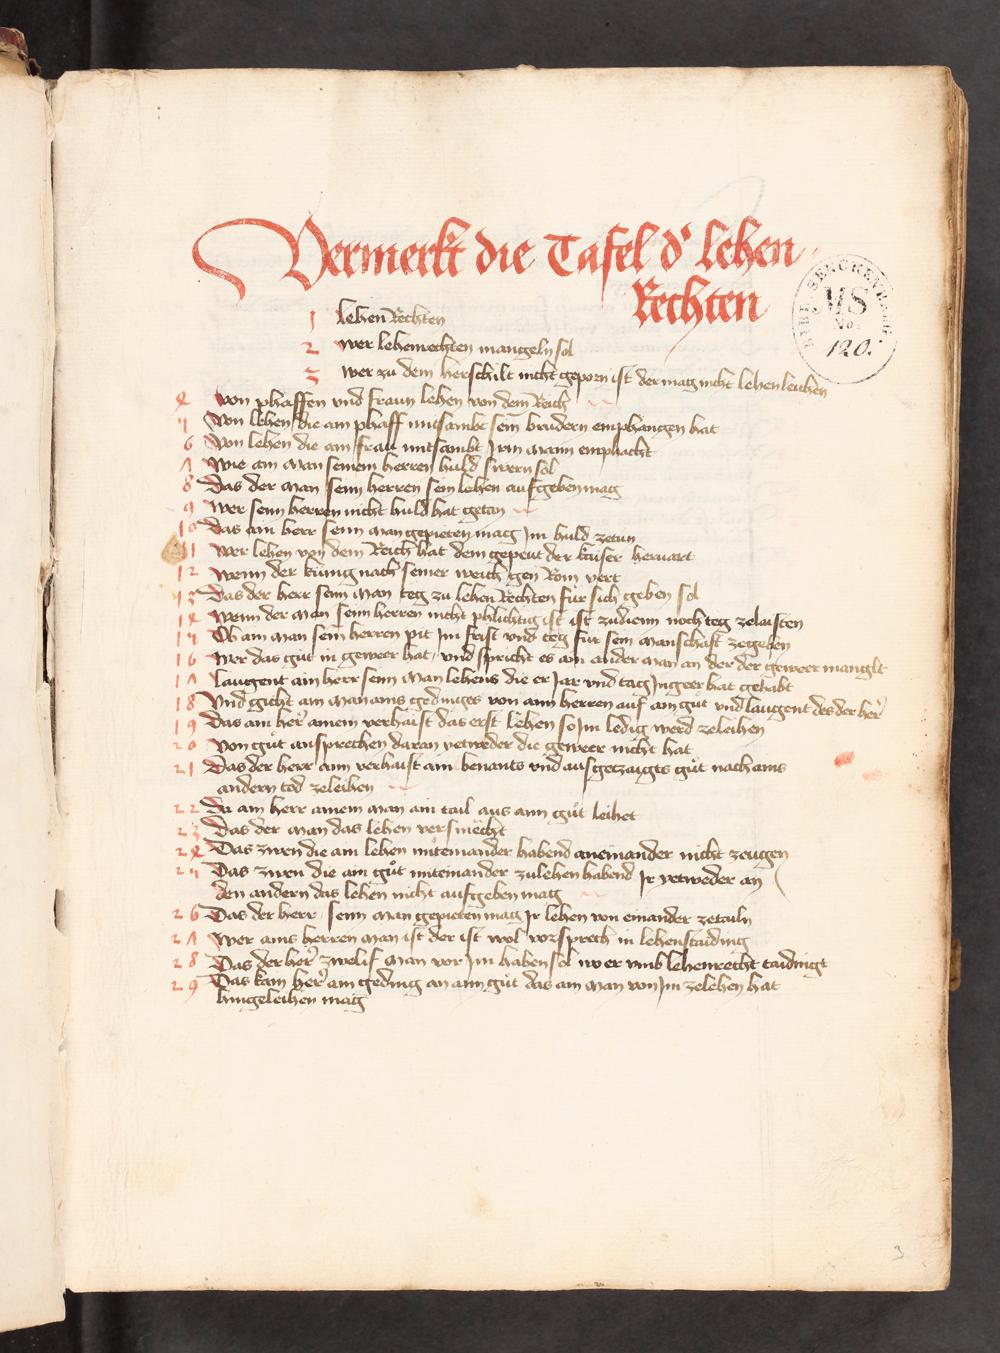 Vermerkt die Tafel d' lehen
Rechten
BIBL. SENCKENBERG.
MS
No.
120.
1 lehen Rechten
2 wer lehenrechten mangeln sol
3 wer zu dem herschilt nicht geporn ist der mag nicht lehen leichen
4 von phaffen vnd frawn lehen von dem Reich
5 Von lehen die ain phaff mitsambt sein brudern emphangen hat
6 Von lehen die ain fraw mitsambt Irm mann emphacht
7 Wie ain man seinem herren huld swern sol
8 Das der man seinn herren sein lehen aufgeben mag
9 Wer seinn herren nicht huld hat getan
10 Das ain herr seinn man gepieten mag Im huld zetun
11 Wer lehen von dem Reich hat dem gepeut der kaiser heruart
12 Wenn der kunig nach seiner weich gen Rom vert
13 Das der herr seinn man teg zu lehen Rechten für sich geben sol
14 Wenn der man seinn herren nicht phlichtig ist ist zudienn noch teg zelaisten
15 Ob ain man sein herren pit Im frist vnd teg für sein manschaft zegeben
16 Wer das gut in geweer hat vnd spricht es ain ander man an der der geweer manglt
17 Laugent ain herr seinn man lehens die er Jar vnd tag Ingeer hat gehabt
18 Vnd gicht ain man ains gedinges von ainn herren auf ain gut vnd laugent des der her'
19 Das ain her' ainem verhaist das erst lehen so Im ledig werd zeleihen
20 Von gut ansprechen daran yetweder die geweer nicht hat
21 Das der herr ainn verhaist ain benants vnd aufgezaigts gut nach ains
andern tod zeleihen
22 Da ain herr ainem man ain tail aus ainn gut leihet
23 Das der man das lehen versmecht
24 Das zwen die ain lehen miteinander habend aneinander nicht zeugen
25 Das zwen die ain gut miteinander zulehen habend Ir yetweder an
den andern das lehen nicht aufgeben mag
26 Das der herr seinn man gepieten mag Ir lehen von einander zetailn
27 Wer ains herren man ist der ist wol vorsprech in lehenstaiding
28 Das der her' zwelif man vor Im haben sol wo er vmb lehenrecht taidingt
29 Das kain her' ain geding an ainn gut das ain man von Im zelehen hat
hingeleihen mag
3